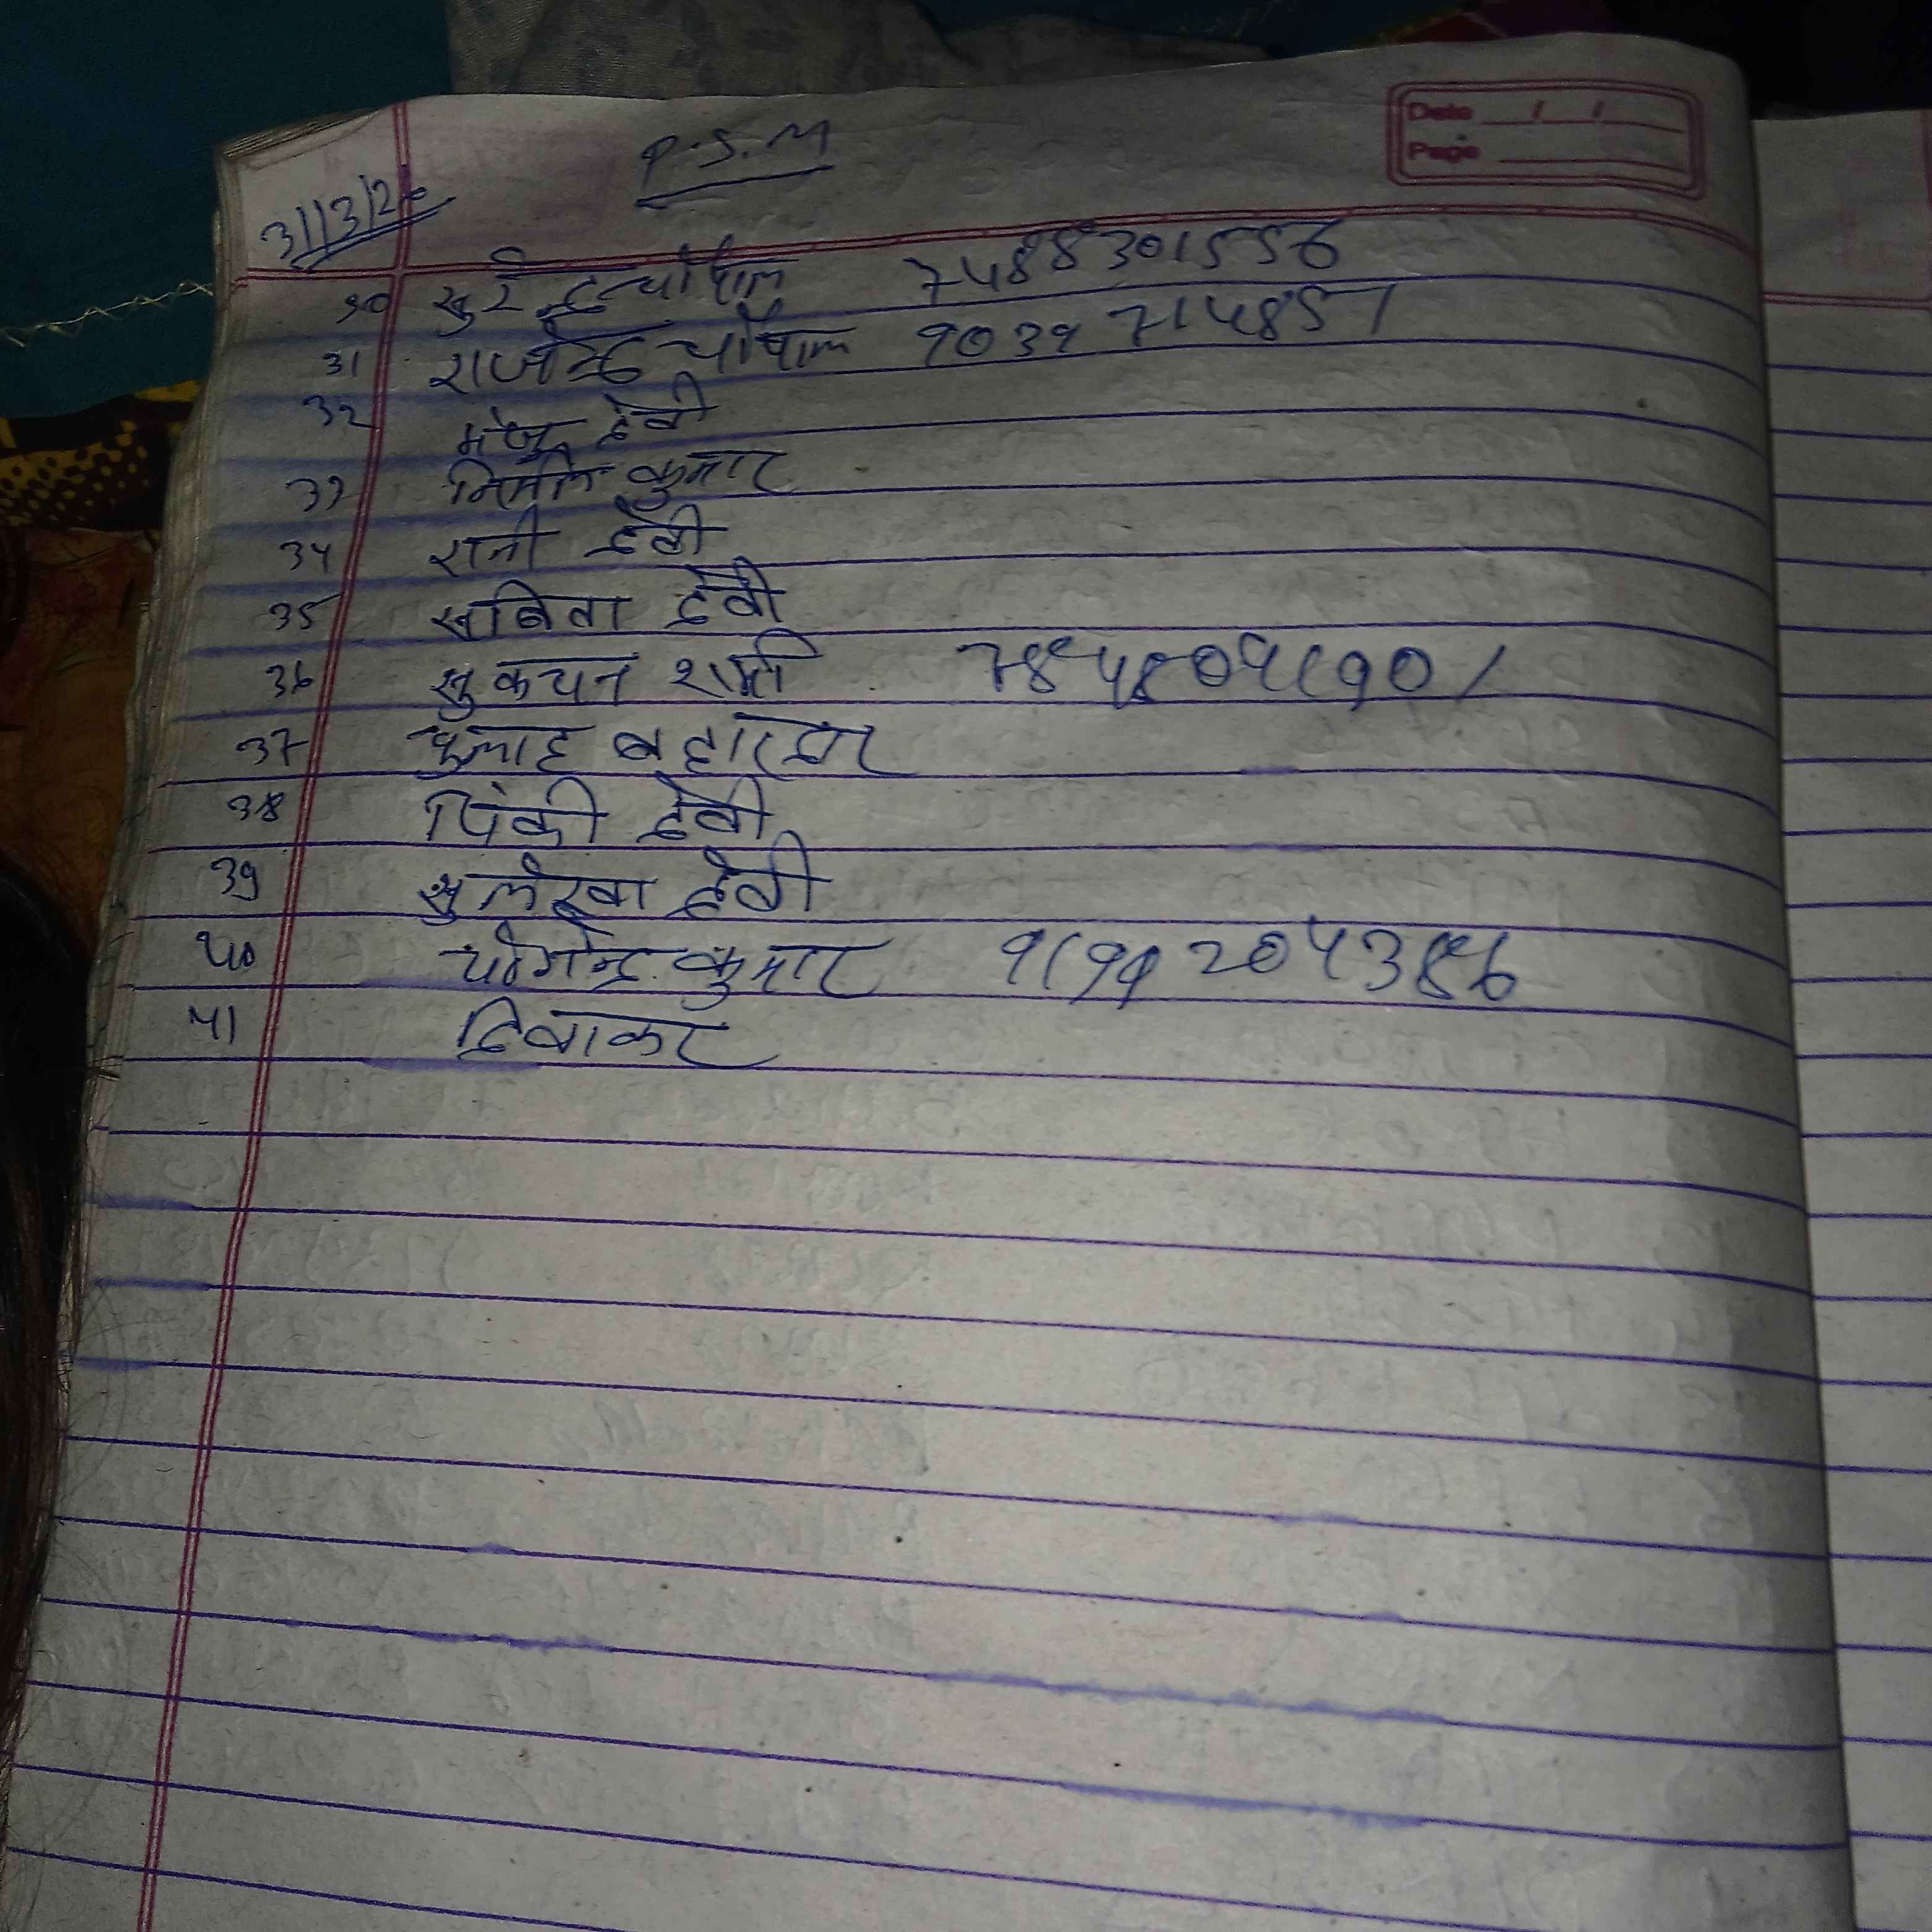 P.S.M
Date / /
Page
31/3/20
30 सुरेन्द्र चौपाल 7488301556
31 राजेन्द्र चौपाल 9039714857
32 मंजू देवी
33 निर्मल कुमार
34 रानी देवी
35 सबिता देवी
36 सुकचन शर्मा
37
38 पिंकी देवी
39 सुलेखा देवी
40 योगेन्द्र कुमार
41 दिवाकर